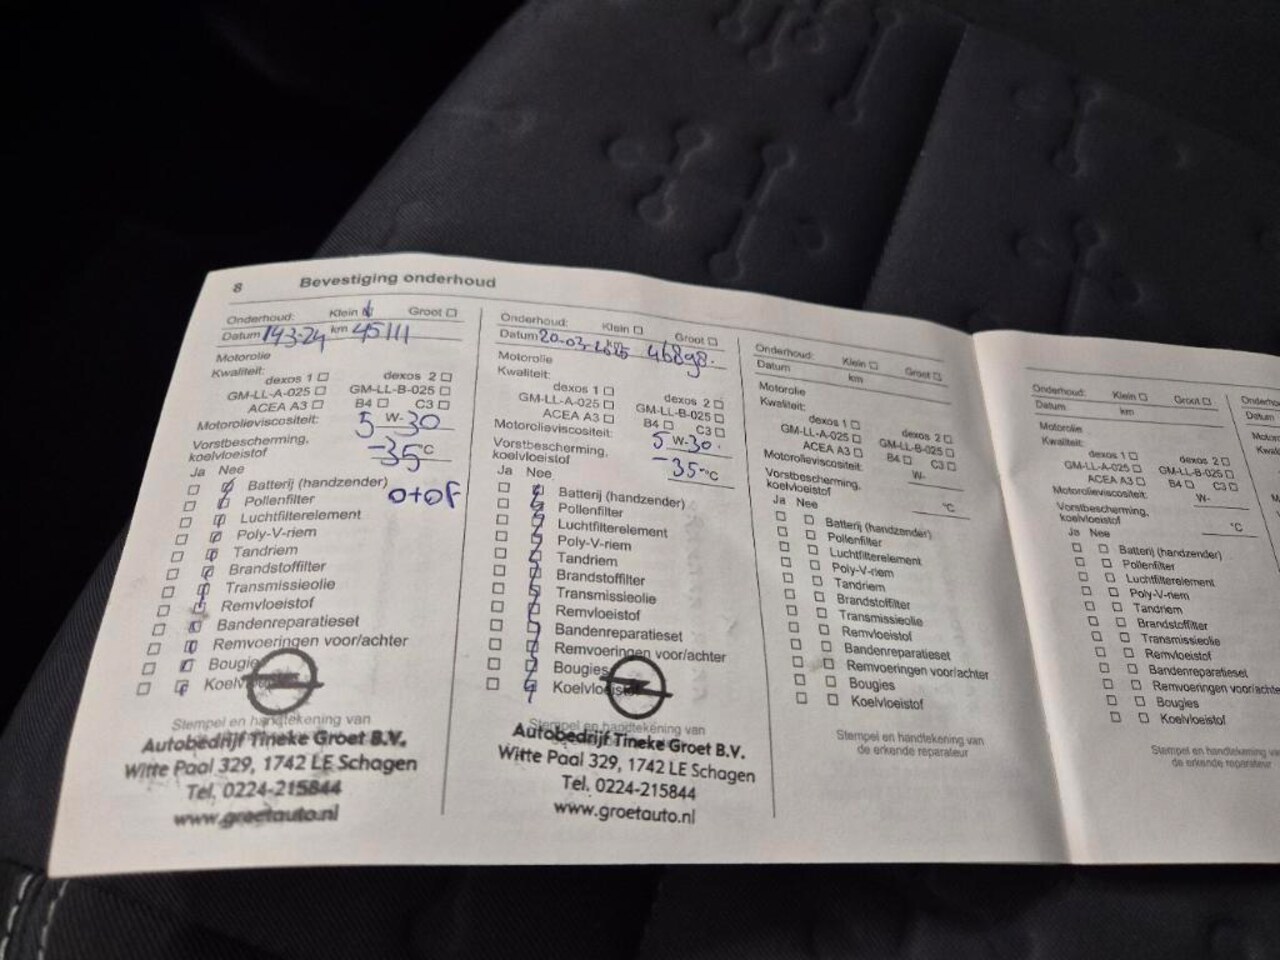 8 Bevestiging onderhoud
Onderhoud: Klein Groot
Datum 14-3-24 km 45111
Motorolie
Kwaliteit:
dexos 1 dexos 2
GM-LL-A-025 GM-LL-B-025
ACEA A3 B4 C3
Motorolieviscositeit: 5 W-30
Vorstbescherming, koelvloeistof -35 °C
Ja Nee
Batterij (handzender)
Pollenfilter o+of
Luchtfilterelement
Poly-V-riem
Tandriem
Brandstoffilter
Transmissieolie
Remvloeistof
Bandenreparatieset
Remvoeringen voor/achter
Bougies
Koelvloeistof
Stempel en handtekening van
Autobedrijf Tineke Groet B.V.
Witte Paal 329, 1742 LE Schagen
Tel. 0224-215844
www.groetauto.nl
Onderhoud: Klein Groot
Datum 20-03-2025 km 46898.
Motorolie
Kwaliteit:
dexos 1 dexos 2
GM-LL-A-025 GM-LL-B-025
ACEA A3 B4 C3
Motorolieviscositeit: 5 W-30.
Vorstbescherming, koelvloeistof -35 °C
Ja Nee
Batterij (handzender)
Pollenfilter
Luchtfilterelement
Poly-V-riem
Tandriem
Brandstoffilter
Transmissieolie
Remvloeistof
Bandenreparatieset
Remvoeringen voor/achter
Bougies
Koelvloeistof
Stempel en handtekening van
Autobedrijf Tineke Groet B.V.
Witte Paal 329, 1742 LE Schagen
Tel. 0224-215844
www.groetauto.nl
Onderhoud: Klein Groot
Datum km
Motorolie
Kwaliteit:
dexos 1 dexos 2
GM-LL-A-025 GM-LL-B-025
ACEA A3 B4 C3
Motorolieviscositeit: W-
Vorstbescherming,
koelvloeistof °C
Ja Nee
Batterij (handzender)
Pollenfilter
Luchtfilterelement
Poly-V-riem
Tandriem
Brandstoffilter
Transmissieolie
Remvloeistof
Bandenreparatieset
Remvoeringen voor/achter
Bougies
Koelvloeistof
Stempel en handtekening van
de erkende reparateur
Onderhoud: Klein Groot
Datum km
Motorolie
Kwaliteit:
dexos 1 dexos 2
GM-LL-A-025 GM-LL-B-025
ACEA A3 B4 C3
Motorolieviscositeit: W-
Vorstbescherming,
koelvloeistof °C
Ja Nee
Batterij (handzender)
Pollenfilter
Luchtfilterelement
Poly-V-riem
Tandriem
Brandstoffilter
Transmissieolie
Remvloeistof
Bandenreparatieset
Remvoeringen voor/achte
Bougies
Koelvloeistof
Stempel en handtekening va
de erkende reparateur